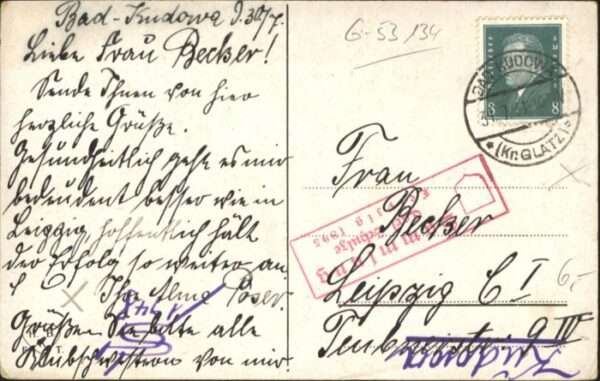 Bad-Kudowa d. 30/7.
Liebe Frau Becker!
Sende Ihnen von hier
herzliche Grüße.
Gesundheitlich geht es mir
bedeutend besser wie in
Leipzig, hoffentlich hält
der Erfolg so weiter an.
Ihre Alma Poser.
Grüßen Sie bitte alle
Klubschwestern von mir.
G-53 134
8 8
BAD KUDOWA
* (Kr. GLATZ)
Frau
Becker
Leipzig C I
Teubnerstr. 9 IV
Sammlung
Schulze
1895
6,-